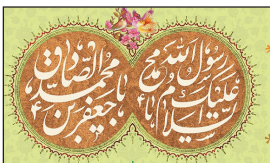 السلام علیک یا محمد رسول الله
یا جعفر بن محمد الصادق